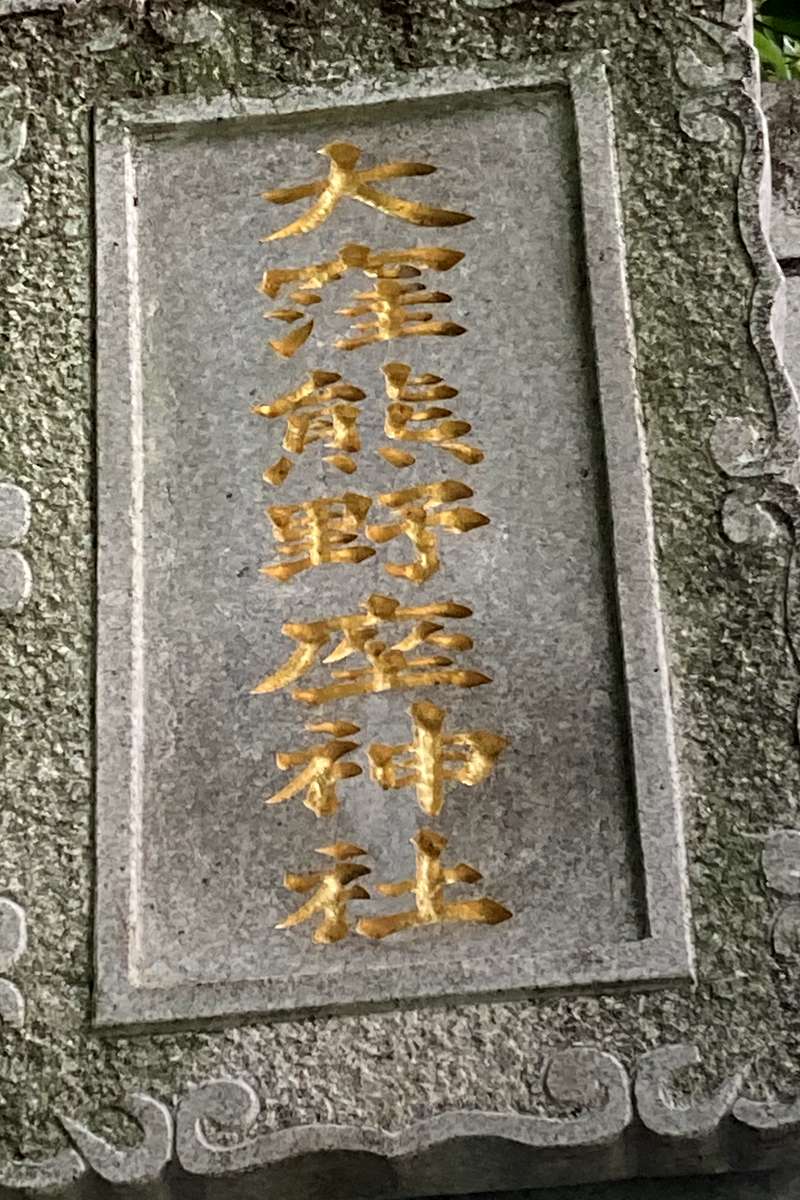 大窪熊野座神社